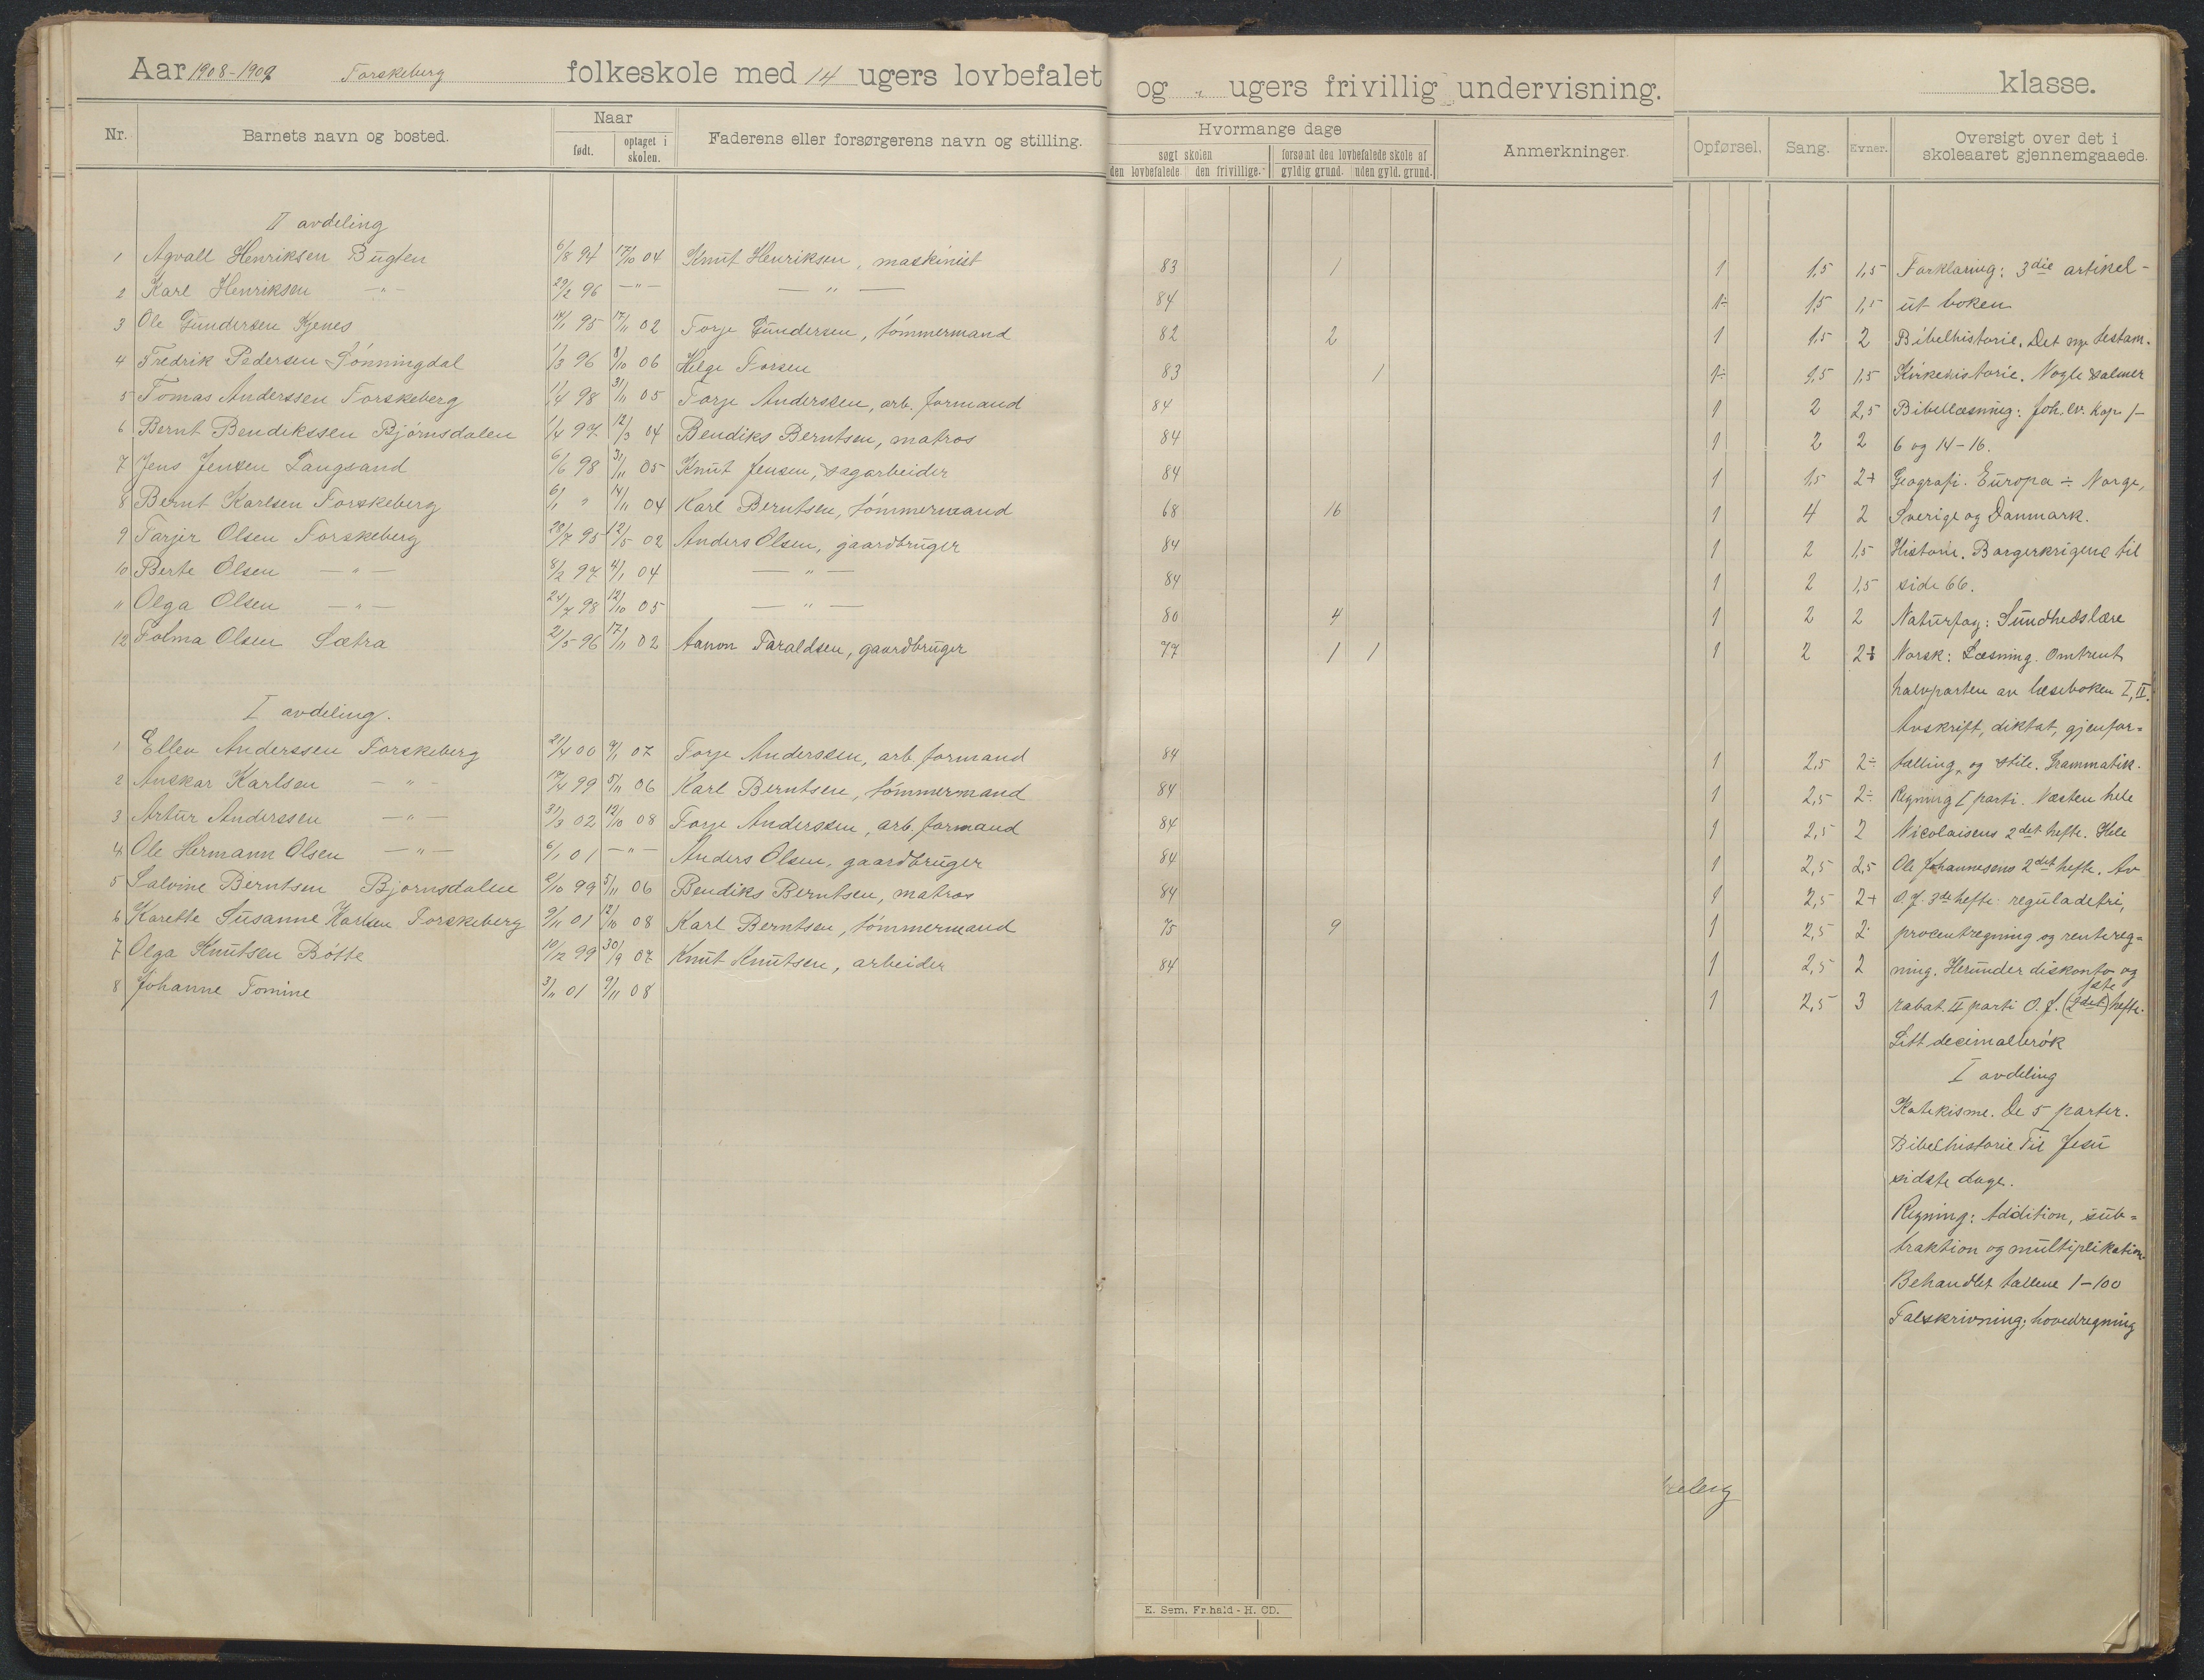 Aar 1908-1909 Torskeberg folkeskole med 14 ugers lovbefalet og " ugers frivillig undervisning. klasse.
Nr. Barnets navn og bosted. Naar født. optaget i skolen. Faderens eller forsørgerens navn og stilling. Hvormange dage søgt skolen den lovbefalede den frivillige. forsømt den lovbefalede skole af gyldig grund. uden gyld. grund. Anmerkninger. Opførsel. Sang. Evner. Oversigt over det i skoleaaret gjennemgaaede.
II avdeling
1 Agvall Henriksen Bugten 6/8 94 17/10 04 Knut Henriksen, maskinist 83 1 1 1,5 1,5 Forklaring: 3die artikel -
2 Karl Henriksen -"- 29/2 96 -"- -"- 84 1÷ 1,5 1,5 ut boken
3 Ole Gundersen Kjenes 14/1 95 17/11 02 Torje Gundersen, tømmermand 82 2 1 1,5 2 Bibelhistorie. Det nye testam.
4 Fredrik Pedersen Lønningdal 1/3 96 8/10 06 Helge Torsen 83 1 1÷ 1,5 1,5 Kirkehistorie. Nogle salmer
5 Tomas Anderssen Torskeberg 1/4 98 31/11 05 Torje Anderssen, arb. formand 84 1 2 2,5 Bibellæsning: Joh. ev. Kap. 1-
6 Bernt Bendikssen Bjørnsdalen 1/4 97 12/3 04 Bendiks Berntsen, matros 84 1 2 2 6 og 14-16.
7 Jens Jensen Langsand 6/6 98 31/11 05 Knut Jensen, sagarbeider 84 1 1,5 2+ Geografi. Europa ÷ Norge,
8 Bernt Karlsen Torskeberg 6/1 " 14/11 04 Karl Berntsen, tømmermand 68 16 1 4 2 Sverige og Danmark.
9 Tarjer Olsen Torskeberg 28/7 95 12/5 02 Anders Olsen, gaardbruger 84 1 2 1,5 Historie. Borgerkrigene til
10 Berte Olsen -"- 8/2 97 4/1 04 -"- 84 1 2 1,5 side 66.
11 Olga Olsen -"- 24/7 98 12/10 05 -"- 80 4 1 2 2 Naturfag: Sundhedslære
12 Tolma Olsen Sætra 21/5 96 17/11 02 Aanon Taraldsen, gaardbruger 77 1 1 1 2 2+ Norsk: Læsning. Omtrent
halvparten av læseboken I, II.
I avdeling.
Avskrift, diktat, gjenfor=
1 Ellev Anderssen Torskeberg 21/4 00 9/1 07 Torje Anderssen, arb. formand 84 1 2,5 2÷ tælling og stile. Grammatik.
2 Anskar Karlsen -"- 17/4 99 5/11 06 Karl Berntsen, tømmermand 84 1 2,5 2÷ Regning I parti. Næsten hele
3 Artur Anderssen -"- 31/3 02 12/10 08 Torje Anderssen, arb. formand 84 1 2,5 2 Nicolaisens 2det hefte. Hele
4 Ole Hermann Olsen -"- 6/1 01 -"- Anders Olsen, gaardbruger 84 1 2,5 2,5 Ole Johannesens 2det hefte. Av
5 Salvine Berntsen Bjørnsdalen 2/10 99 5/11 06 Bendiks Berntsen, matros 84 1 2,5 2+ O. J. 3die hefte. reguladetri,
6 Karette Susanne Karlsen Torskeberg 9/11 01 12/10 08 Karl Berntsen, tømmermand 75 9 1 2,5 2 procentregning og rentereg=
7 Olga Knutsen Bøtte 10/12 99 30/9 07 Knut Knutsen, arbeider 84 1 2,5 2 ning. Herunder diskonto og
8 Johanne Tomine 3/11 01 9/11 08 1 2,5 3 rabat. II parti O. J. (2det) hefte.
Litt decimalbrøk
I avdeling
Katekisme. De 5 parter.
Bibelhistorie Til Jesu
sidste dage.
Regning: Addition, sub=
traktion og multiplikation.
Behandlet tallene 1-100
Talskrivning; hovedregning
E. Sem. Fr.hald - H. OD.